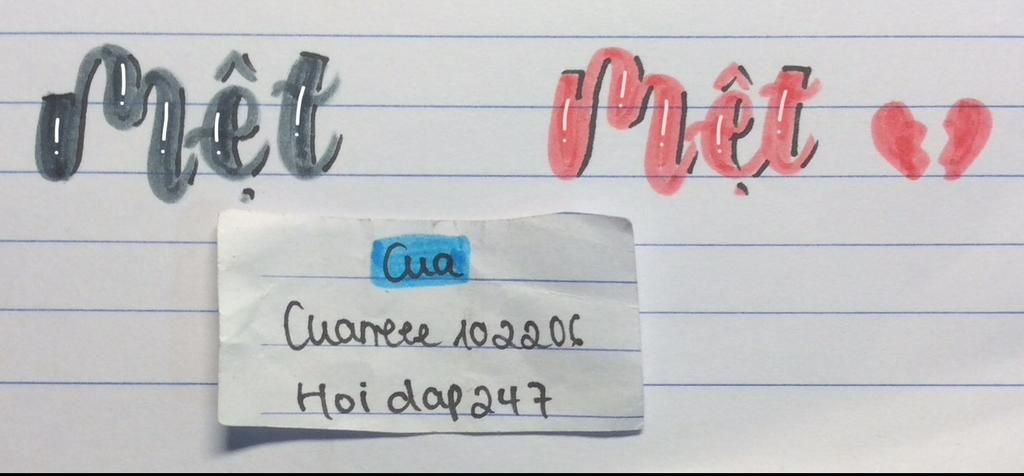 Mệt Mệt
Cua
Cuarrese 102206
Hoi dap 247